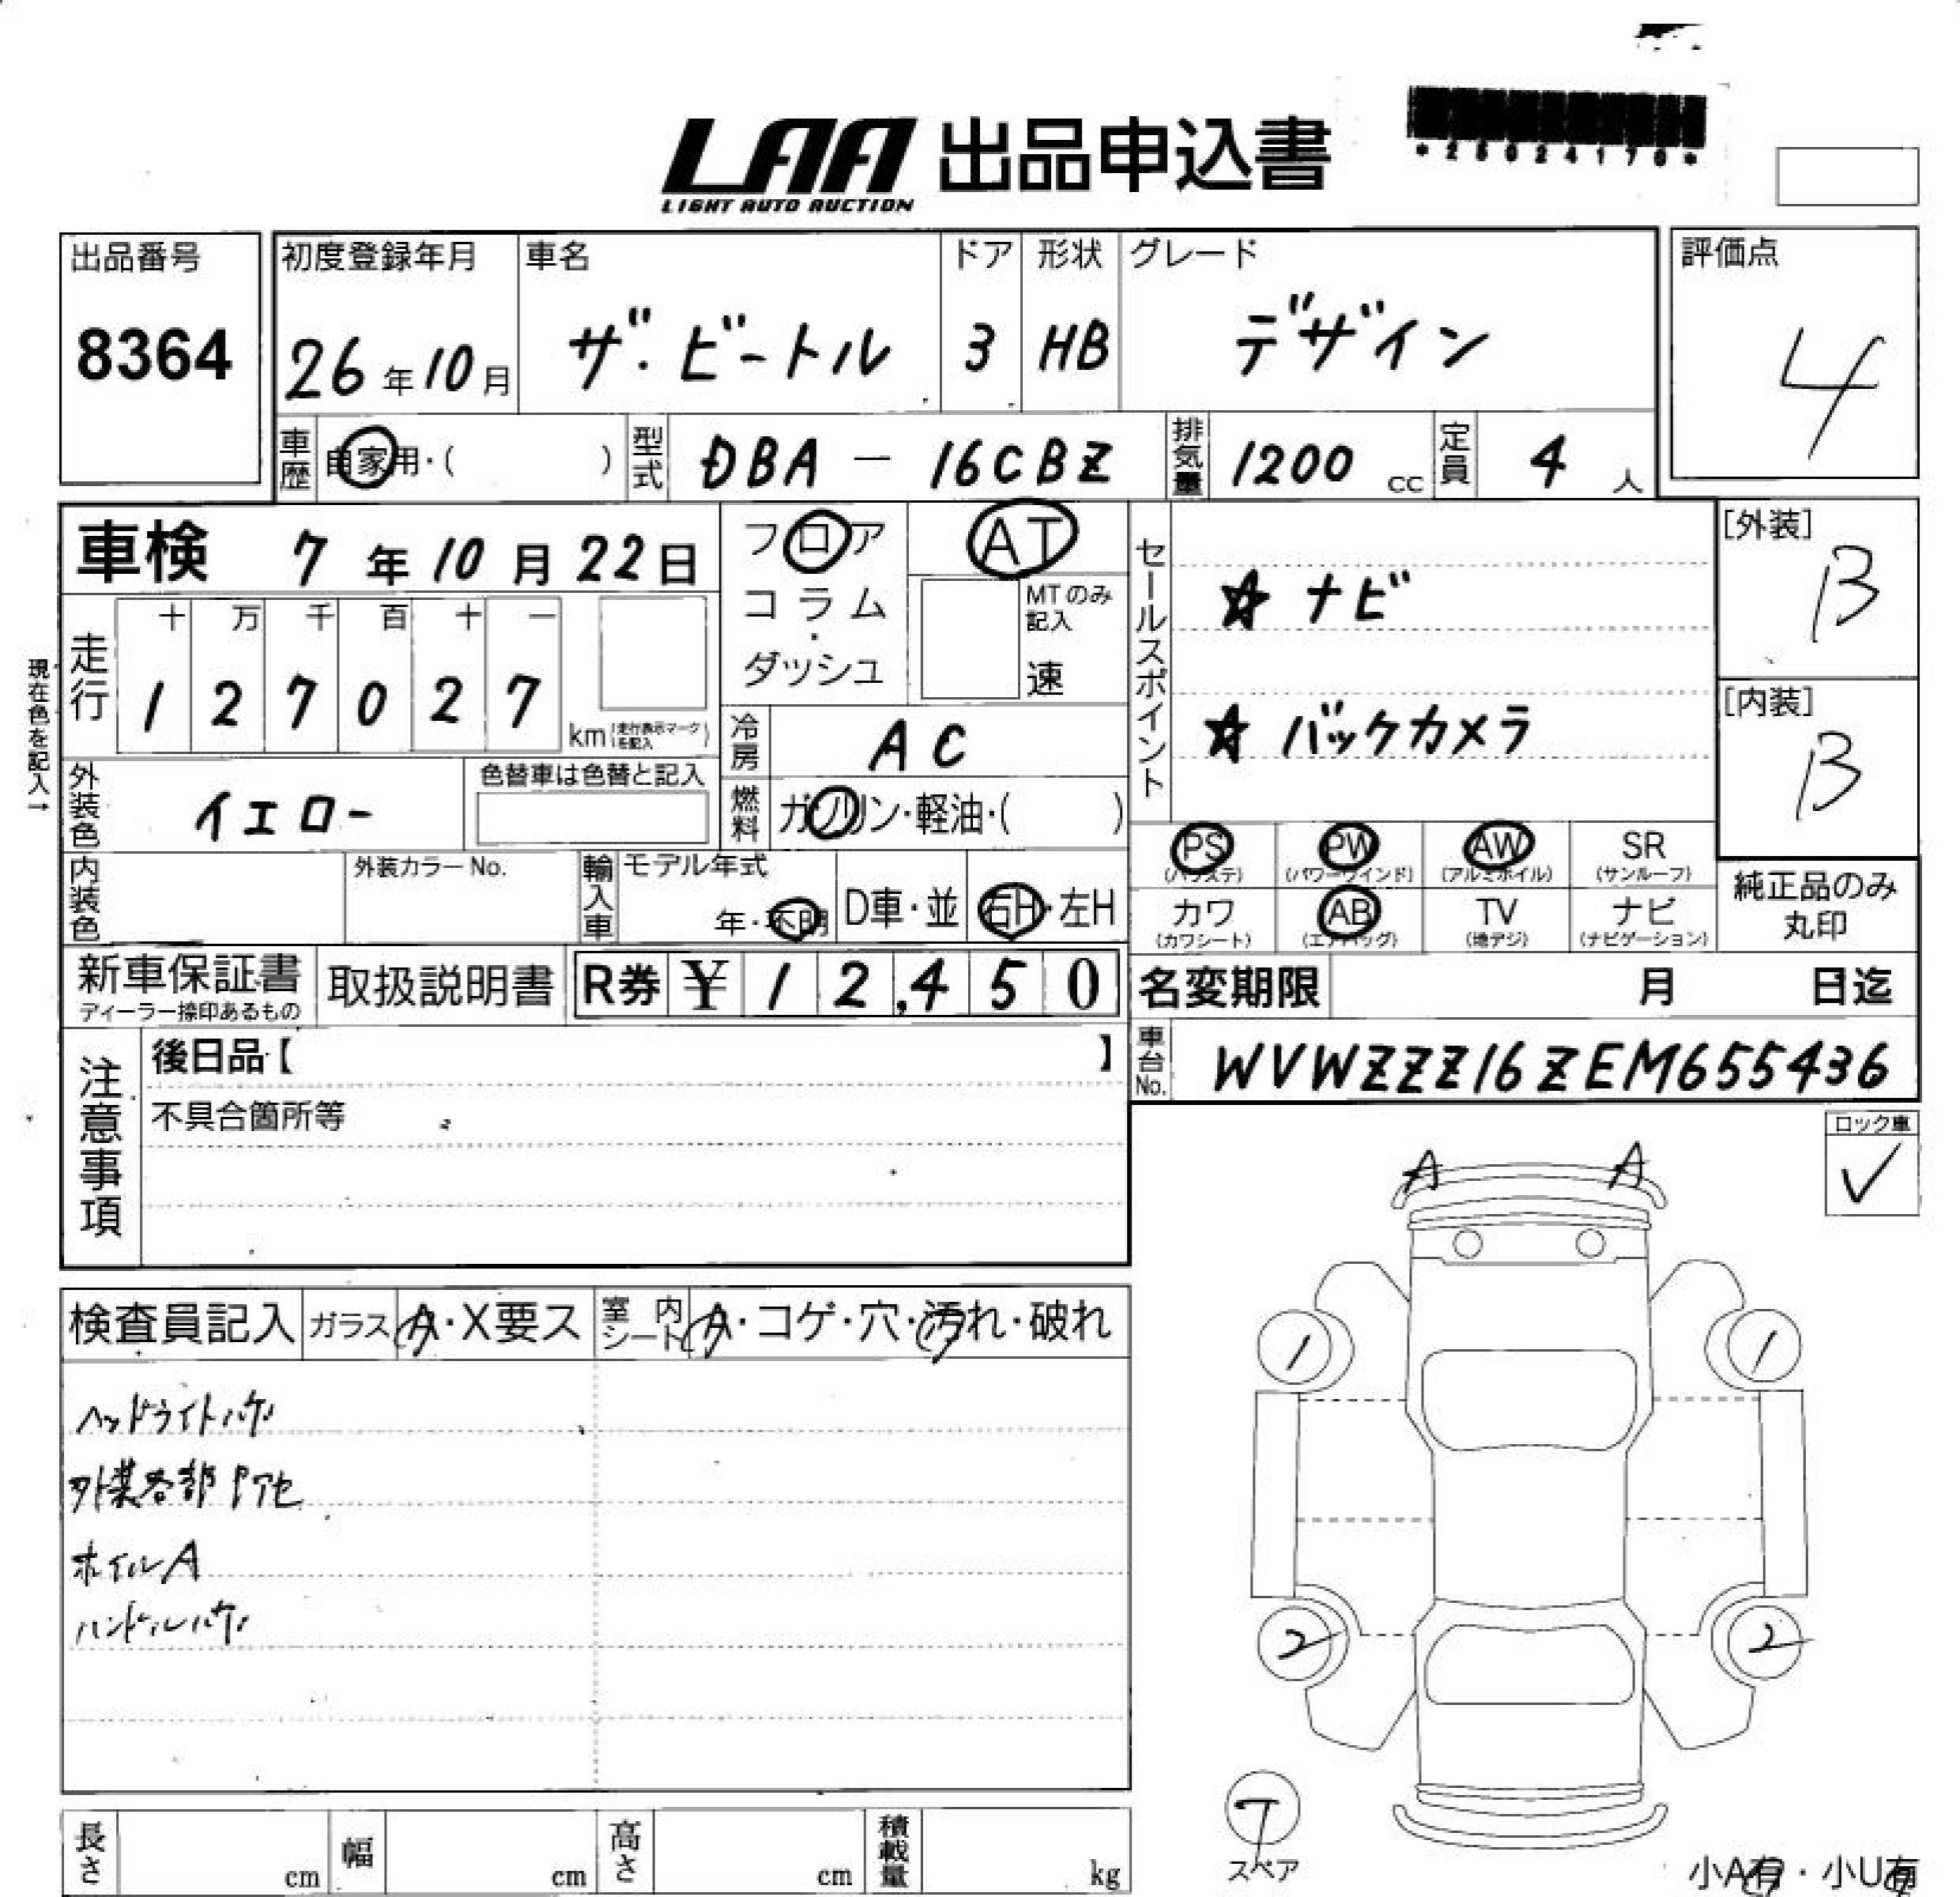 LAA 出品申込書
LIGHT AUTO AUCTION
*25024170*
出品番号
8364
初度登録年月
26年10月
車名
ザ・ビートル
ドア
3
形状
HB
グレード
デザイン
評価点
4
車歴
自家用・( )
型式
DBA - 16CBZ
排気量
1200 cc
定員
4 人
車検 7年10月22日
フロア
コラム
・
ダッシュ
AT
MTのみ記入
速
セールスポイント
☆ ナビ
☆ バックカメラ
[外装]
B
[内装]
B
現在色を記入→
走行
十 万 千 百 十 一
1 2 7 0 2 7
km (走行表示マークを記入)
冷房
AC
外装色
イエロー
色替車は色替と記入
燃料
ガソリン・軽油・( )
内装色
外装カラーNo.
輸入車
モデル年式
年・不明
D車・並
右H・左H
PS (パワステ)
PW (パワーウインド)
AW (アルミホイル)
SR (サンルーフ)
カワ (カワシート)
AB (エアバッグ)
TV (地デジ)
ナビ (ナビゲーション)
純正品のみ
丸印
新車保証書
ディーラー捺印あるもの
取扱説明書
R券 ¥12,450
名変期限 月 日迄
車台No.
WVWZZZ16ZEM655436
注意事項
後日品【 】
不具合箇所等
ロック車
✓
A A
検査員記入
ガラス A・X要ス
室内シート A・コゲ・穴・汚れ・破れ
ヘッドライトハゲ
外装各部
ホイルA
ハンドルハゲ
1 1
2 2
T
スペア
長さ cm
幅 cm
高さ cm
積載量 kg
小A有・小U有